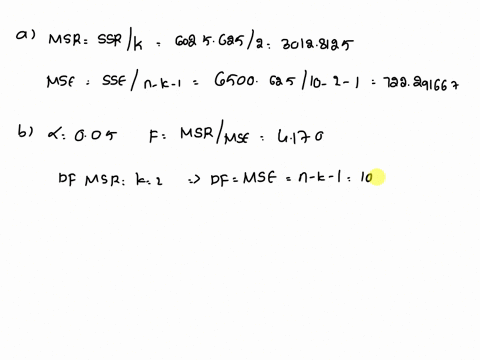 a) MSR = SSR/k = 6025.625/2 = 3012.8125
MSE = SSE/n-k-1 = 6500.625/10-2-1 = 722.291667
b) α = 0.05 F = MSR/MSE = 4.170
DF MSR = k = 2 => DF = MSE = n-k-1 = 10